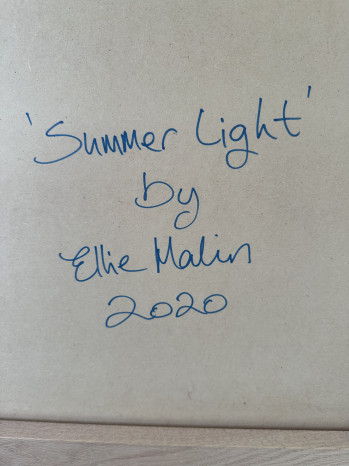 'Summer Light'
by
Ellie Malin
2020